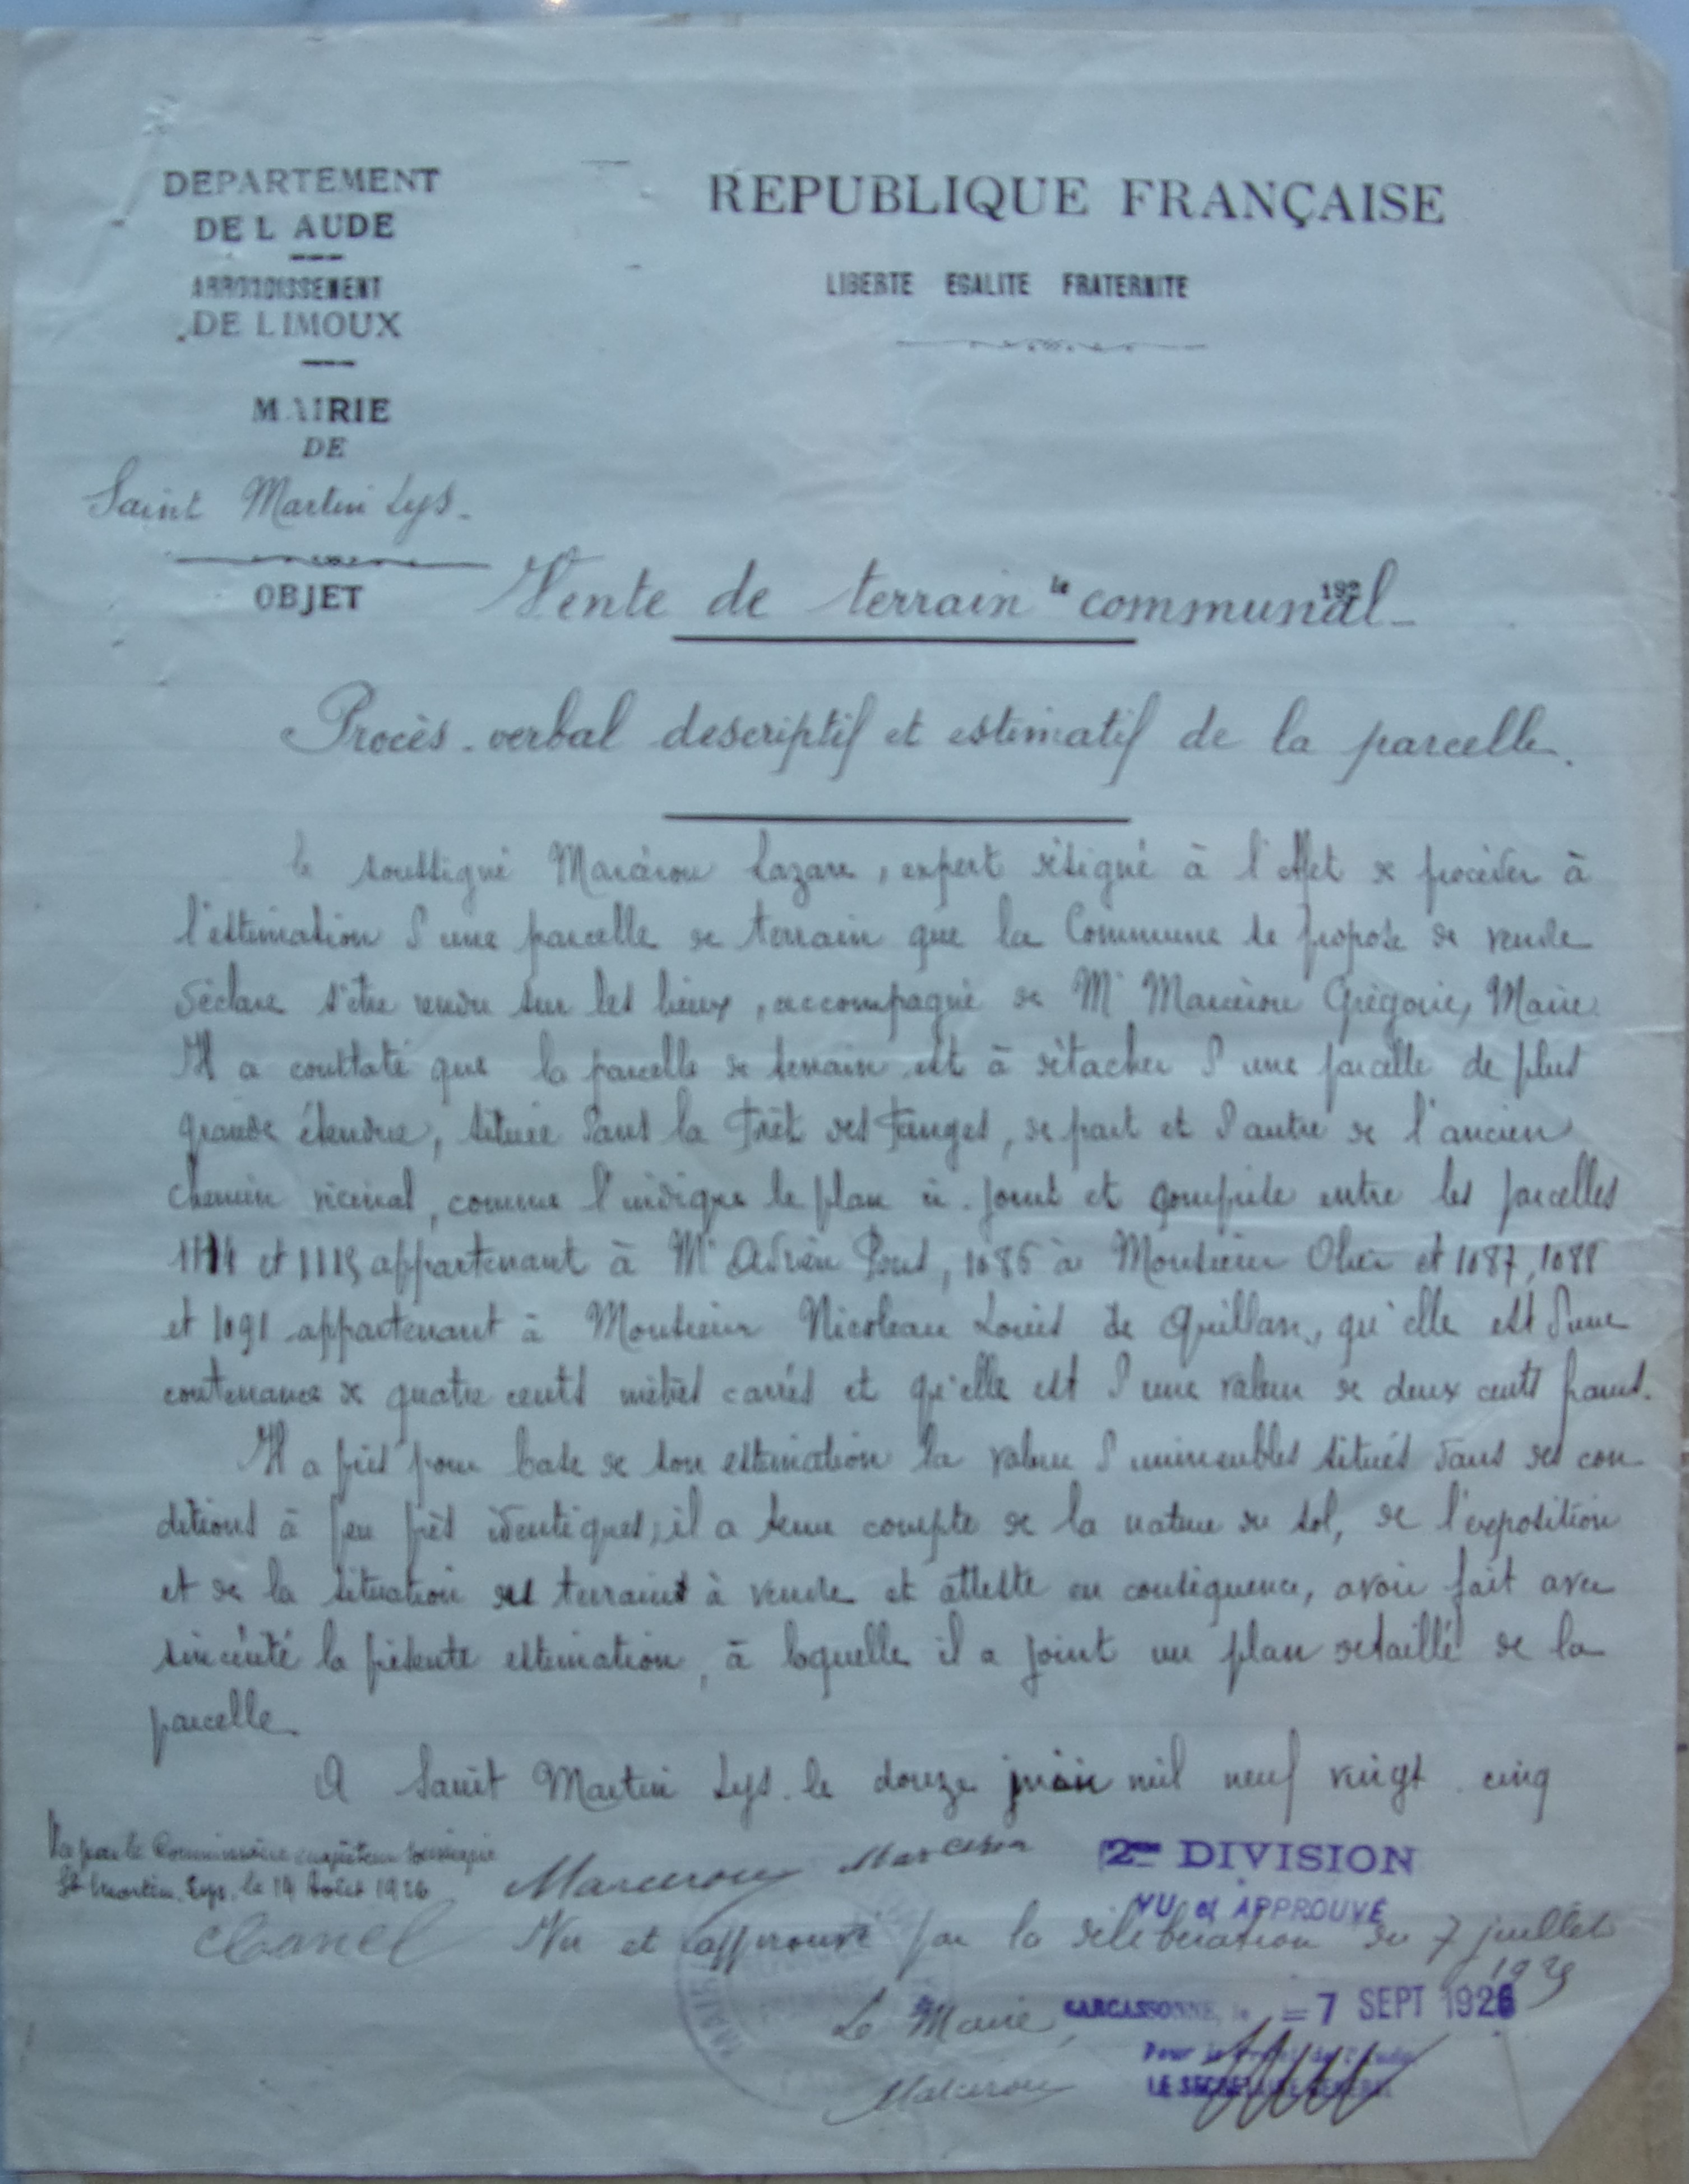 DEPARTEMENT
DE L AUDE
ARRONDISSEMENT
DE LIMOUX
MAIRIE
DE
Saint Martin Lys
REPUBLIQUE FRANÇAISE
LIBERTE EGALITE FRATERNITE
OBJET
le 192
Vente de terrain communal
Procès-verbal descriptif et estimatif de la parcelle.
Le soussigné Marcérou Lazare, expert désigné à l'effet de procéder à
l'estimation d'une parcelle de terrain que la Commune se propose de vendre
déclare s'être rendu sur les lieux, accompagné de Mr Marcérou Grégoire, Maire.
Il a constaté que la parcelle de terrain est à détacher d'une parcelle de plus
grande étendue, située dans la Forêt des Fanges, de part et d'autre de l'ancien
chemin vicinal, comme l'indique le plan ci-joint et comprise entre les parcelles
1114 et 1115 appartenant à Mr Adrien Pous, 1086 à Monsieur Olier et 1087, 1088
et 1091 appartenant à Monsieur Nicoleau Louis de Quillan, qu'elle est d'une
contenance de quatre cents mètres carrés et qu'elle est d'une valeur de deux cents francs.
Il a pris pour base de son estimation la valeur d'immeubles situés dans des con-
ditions à peu près identiques; il a tenu compte de la nature du sol, de l'exposition
et de la situation des terrains à vendre et atteste en conséquence, avoir fait avec
sincérité la présente estimation, à laquelle il a joint un plan détaillé de la
parcelle.
A Saint Martin Lys le douze juin mil neuf vingt cinq
Vu par le Commissaire enquêteur soussigné
St Martin Lys, le 19 Août 1926
Marcerou Marcerou
2me DIVISION
VU et APPROUVÉ
Vu et approuvé par la délibération du 7 juillet
1925
Le Maire,
CARCASSONNE, le = 7 SEPT 1926
Pour le Préfet de l'Aude
LE SECRETAIRE GENERAL
Marcerou
MAIRIE